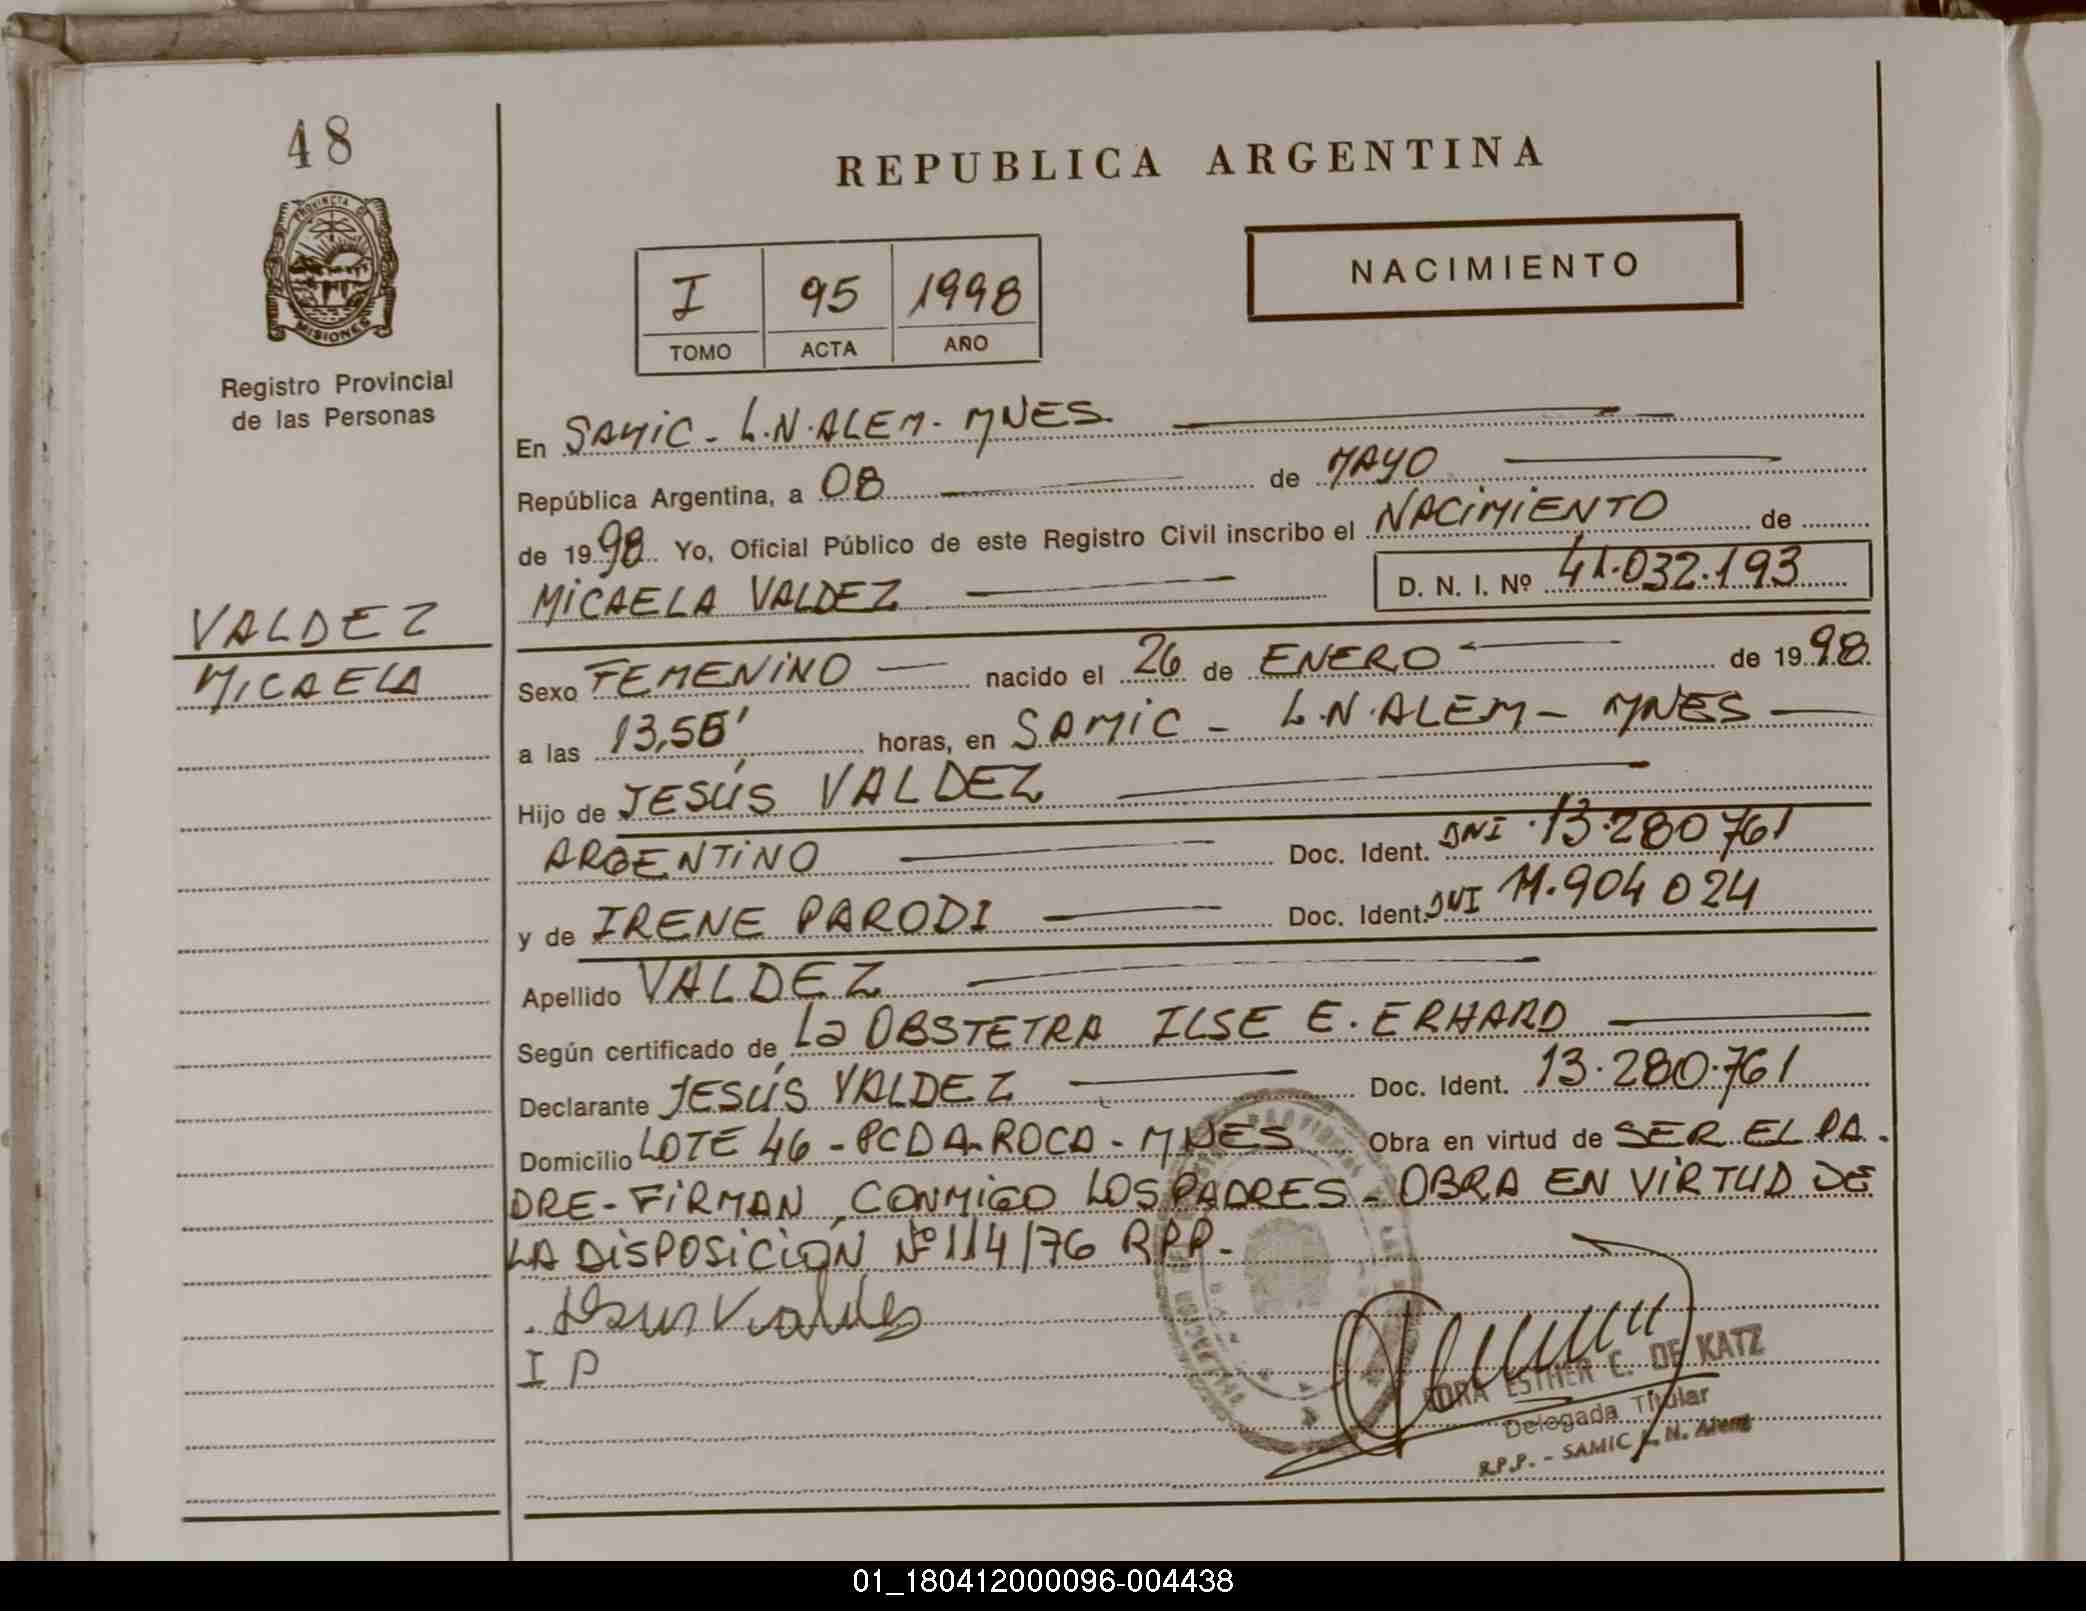 48
PROVINCIA DE
MISIONES
Registro Provincial
de las Personas
VALDEZ
MICAELA
REPUBLICA ARGENTINA
NACIMIENTO
I 95 1998
TOMO ACTA AÑO
En SAMIC - L.N.ALEM - MNES.
República Argentina, a 08 de MAYO
de 1998 Yo, Oficial Público de este Registro Civil inscribo el NACIMIENTO de
MICAELA VALDEZ D. N. I. Nº 41.032.193
Sexo FEMENINO nacido el 26 de ENERO de 1998
a las horas, en SAMIC - L.N.ALEM - MNES
Hijo de JESÚS VALDEZ
ARGENTINO Doc. Ident. DNI 13.280761
y de IRENE PARODI Doc. Ident. DNI 11.904024
Apellido VALDEZ
Según certificado de La OBSTETRA ILSE E. ERHARD
Declarante JESÚS VALDEZ Doc. Ident. 13.280.761
Domicilio LOTE 46 - PCDA ROCA - MNES Obra en virtud de SER EL PA-
DRE - FIRMAN CONMIGO LOS PADRES - OBRA EN VIRTUD DE
LA DISPOSICIÓN Nº 114/76 RPP.
Jesus Valdez
I P
ESTHER C. DE KATZ
Delegada Titular
R.P.P. - SAMIC L. N. Alem
01_180412000096-004438